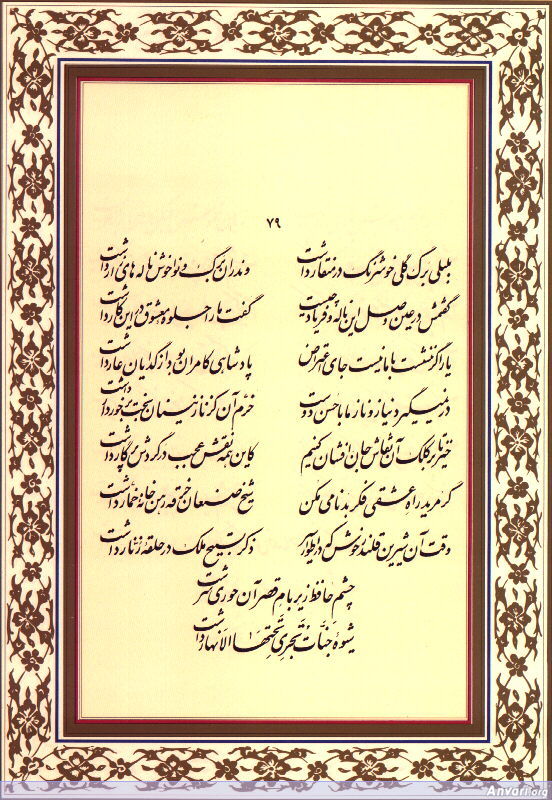 ۷۹
بلبلی برگ گلی خوشرنگ در منقار داشت وندران برگ و نوا خوش ناله های زار داشت
گفتمش در عین وصل این ناله و فریاد چیست گفت ما را جلوه معشوق در این کار داشت
یار اگر ننشست با ما نیست جای اعتراض پادشاهی کامران بود از گدایان عار داشت
در نمیگیرد نیاز و ناز ما با حسن دوست خرم آن کز نازنینان بخت برخوردار داشت
خیز تا بر کلک آن نقاش جان افشان کنیم کاین همه نقش عجب در گردش پرگار داشت
گر مرید راه عشقی فکر بدنامی مکن شیخ صنعان خرقه رهن خانهٔ خمار داشت
وقت آن شیرین قلندر خوش که در اطوار سیر ذکر تسبیح ملک در حلقهٔ زنار داشت
چشم حافظ زیر بام قصر آن حوری سرشت
شیوهٔ جنّات تجری تحتها الانهار داشت
Anvari.org